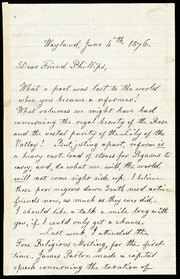 Wayland, June 4th, 1876.
Dear Friend Phillips,
What a poet was lost to the world
when you became a reformer!
What volumes we might have had
concerning the regal beauty of the Rose
and the vestal purity of the Lily of the
Valley! But, joking apart, reform is
a heavy cart-load of stones for Pegasus to
carry; and, do what we will, the world
will not come right side up. I believe
those poor negroes down South need active
friends now, as much as they ever did.
I should like to talk a mile long with
you, if I could only get a chance.
Last week I attended the
Free Religious Meeting, for the first
time. James Parton made a capital
speech concerning the taxation of